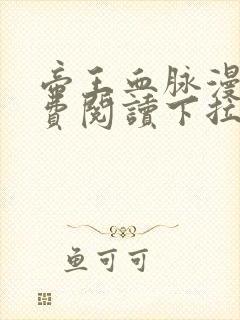 帝王血脉漫
费閱讀下拉
鱼可可